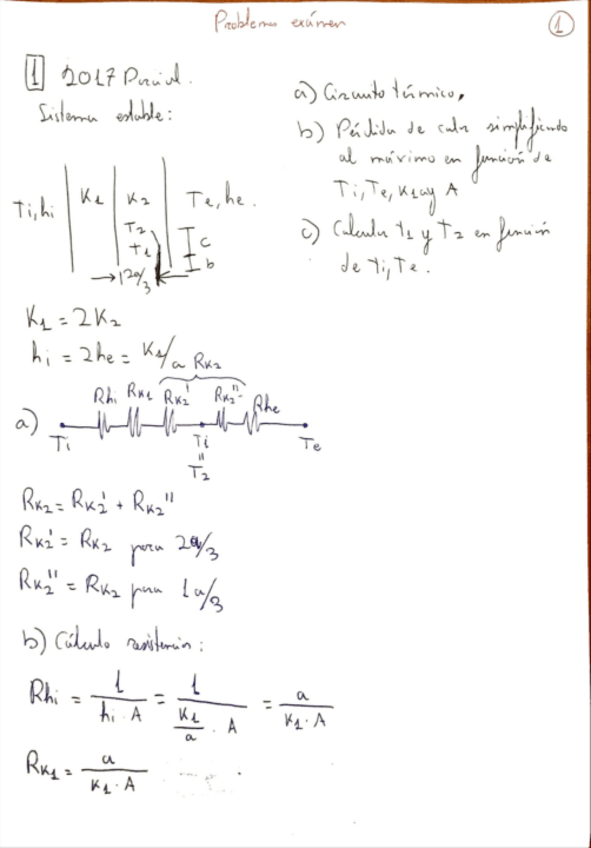 Problemas exámen
1
1 2017 Parcial.
Sistema estable:
a) Circuito térmico.
b) Pérdida de calor simplificando
al máximo en función de
Ti, Te, K1, a y A
c) Calcular T1 y T2 en función
de Ti, Te.
Ti, hi
K1
K2
T2
T1
Te, he.
c
b
2a/3
K1 = 2K2
hi = 2he = K1/a
RK2
a)
Rhi RK1 RK2' RK2'' Rhe
Ti
Ti
"
T2
Te
RK2 = RK2' + RK2''
RK2' = RK2 para 2a/3
RK2'' = RK2 para 1a/3
b) Cálculo resistencias:
Rhi = 1/(hi · A) = 1/(K1/a · A) = a/(K1 · A)
RK1 = a/(K1 · A)